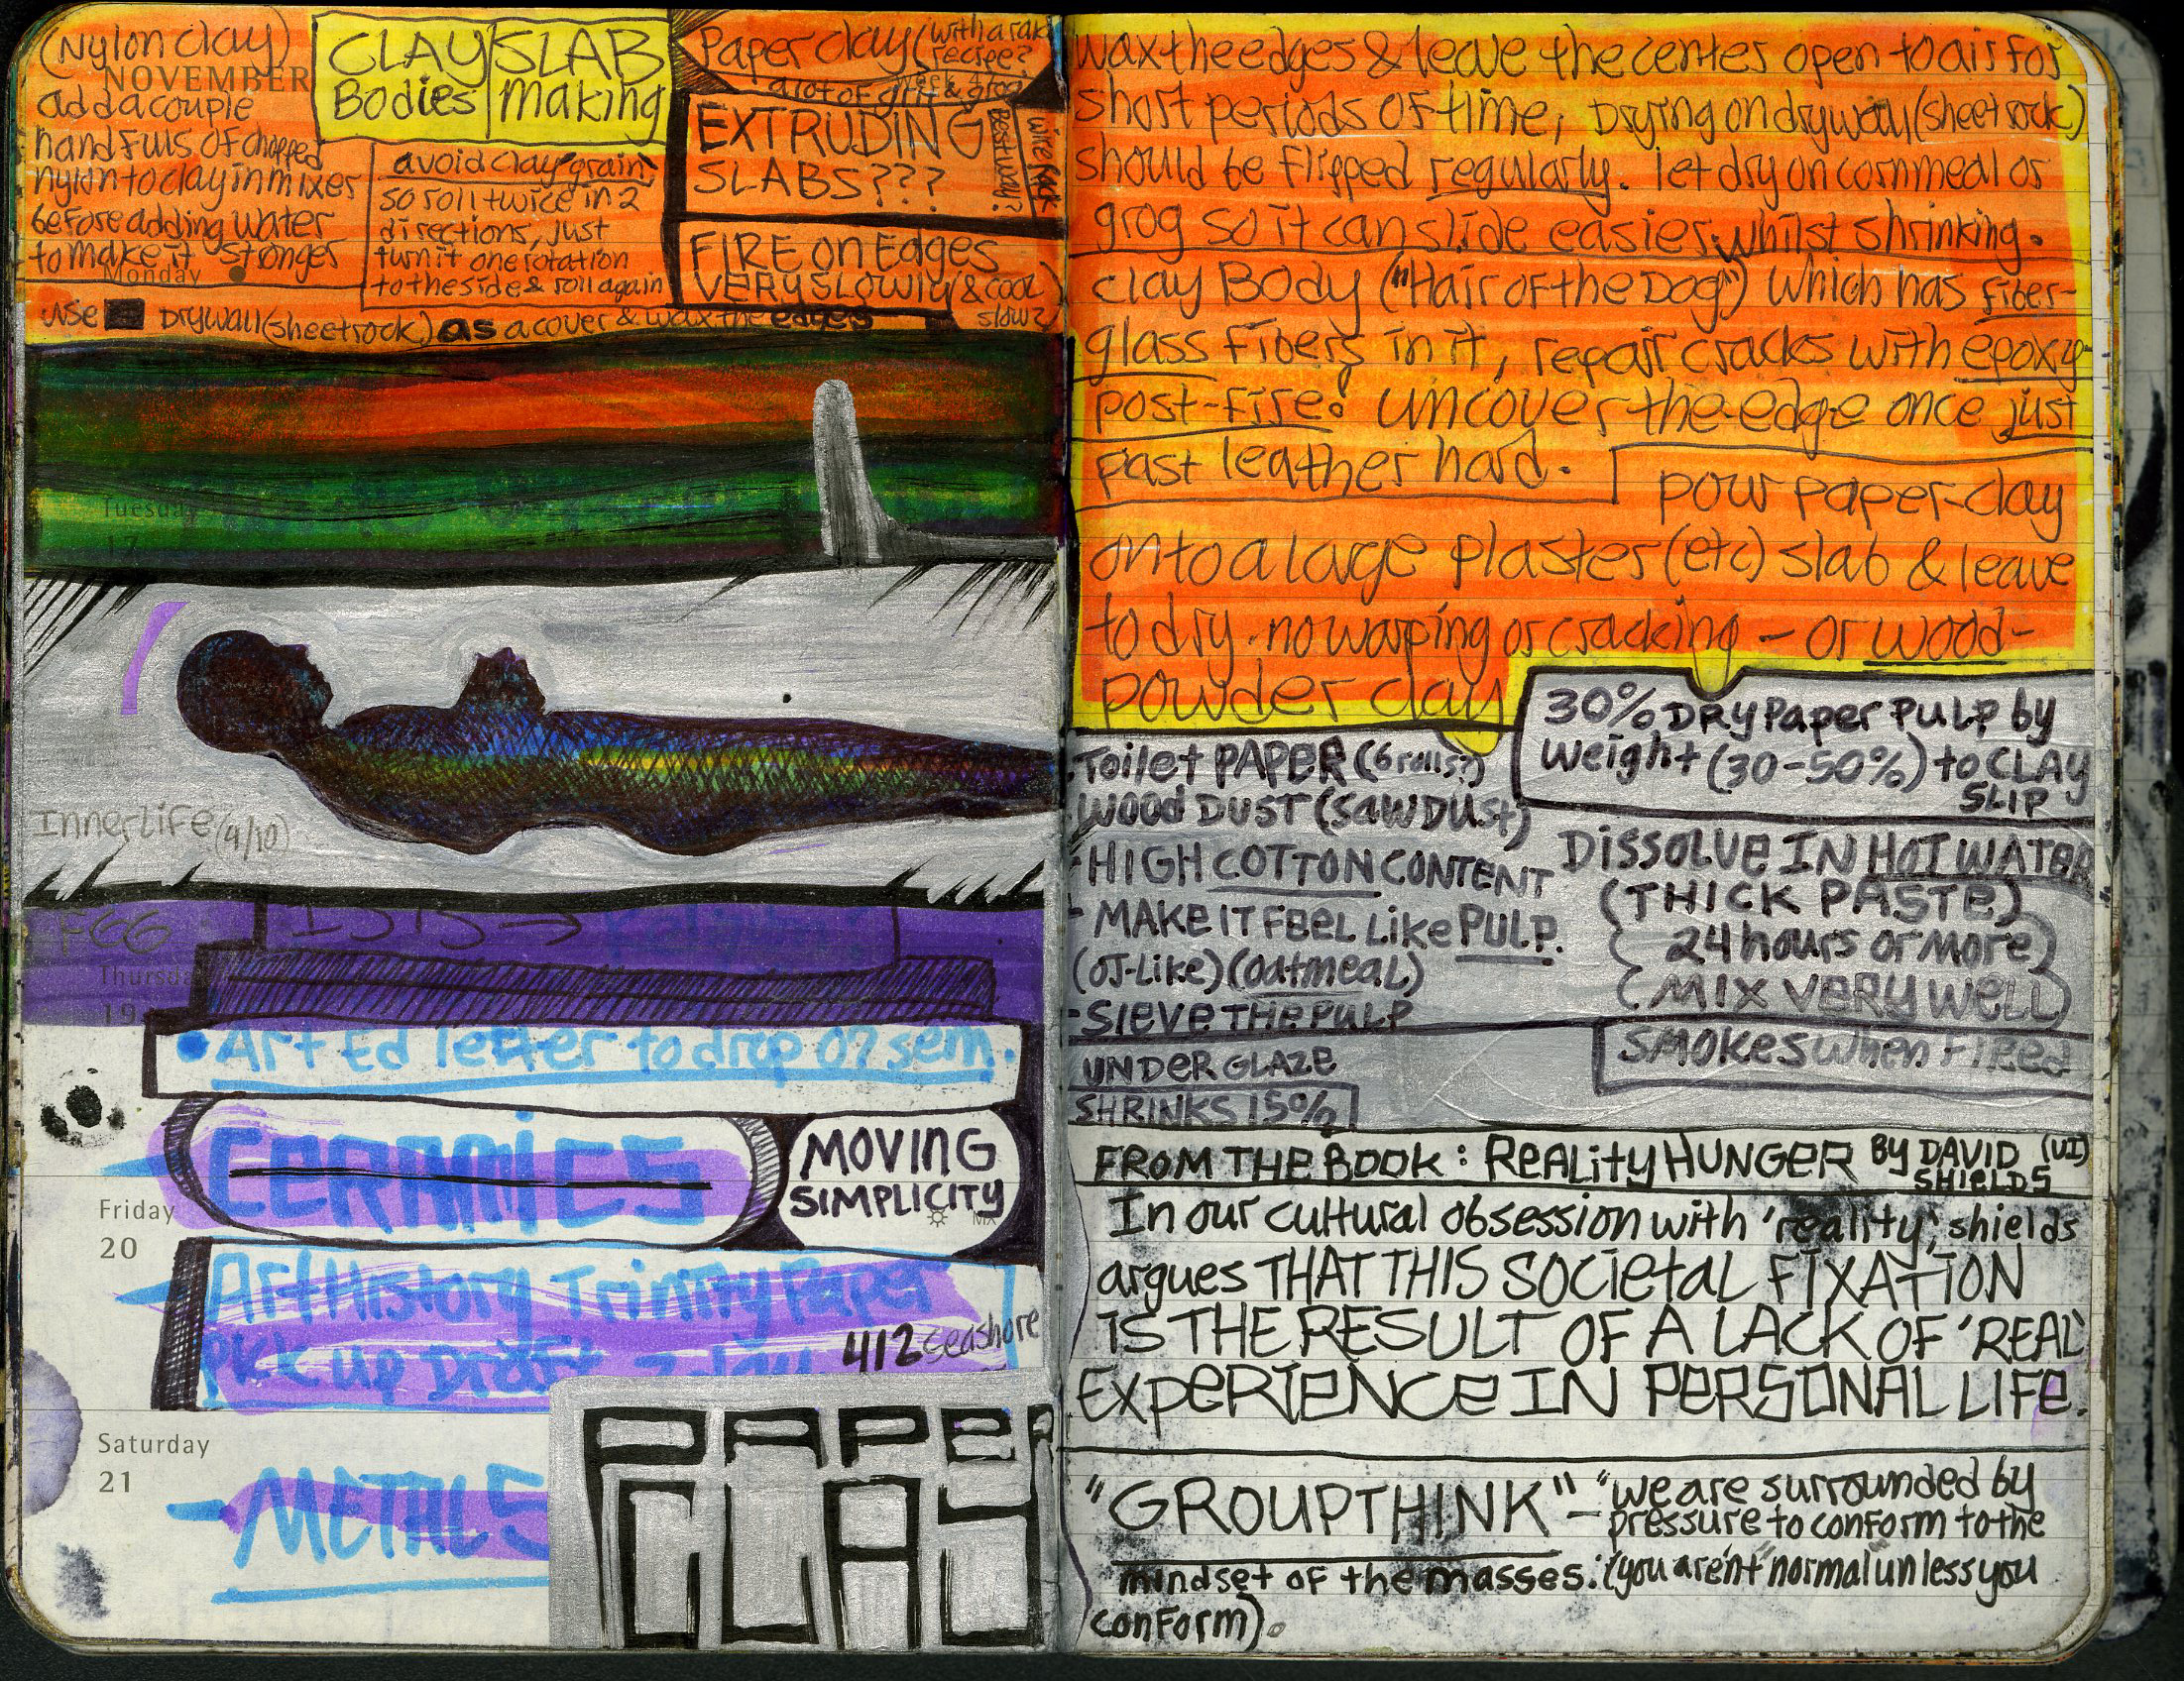 (Nylon clay)
NOVEMBER
add a couple
handfuls of chopped
nylon to clay in mixer
before adding water
to make it stronger
Monday
CLAY
Bodies
SLAB
Making
avoid clay grain,
so roll twice in 2
directions, just
turn it one rotation
to the side & roll again
Paper clay (with a raku
recipe?
Week 47
a lot of grit & grog
EXTRUDING
SLABS???
Best way?
FIRE on Edges
VERY SLOWLY (& cool
slow?)
use Drywall (sheetrock) as a cover & wax the edges
Tuesday
17
InnerLife (4/10)
FGG
ISIS →
Thursday
19
• Art Ed letter to drop 07 sem.
- CERAMICS
MOVING
SIMPLICITY
Friday
20
- Art History Trinity Paper
Pick up Draft
412 seashore
Saturday
21
- METALS
PAPER
wax the edges & leave the center open to air for
short periods of time, Drying on drywall (sheetrock)
should be flipped regularly. let dry on cornmeal or
grog so it can slide easier whilst shrinking.
Clay Body ("Hair of the Dog") which has fiber-
glass fibers in it, repair cracks with epoxy
post-fire! uncover the edge once just
past leather hard.
pour paper-clay
onto a large plaster (etc) slab & leave
to dry - no warping or cracking - or wood-
powder clay
30% DRY Paper Pulp by
weight (30-50%) to CLAY
SLIP
- Toilet PAPER (6 rolls?)
- WOOD DUST (SAWDUST)
- HIGH COTTON CONTENT
- MAKE IT FEEL Like PULP.
(OJ-Like) (oatmeal)
- SIEVE THE PULP
UNDERGLAZE
SHRINKS 15%
DISSOLVE IN HOT WATER
(THICK PASTE)
(24 hours or more)
(MIX VERY WELL)
SMOKES when FIRED
FROM THE BOOK: REALITY HUNGER BY DAVID (UI)
SHIELDS
In our cultural obsession with 'reality', shields
argues THAT THIS SOCIETAL FIXATION
IS THE RESULT OF A LACK OF 'REAL'
EXPERIENCE IN PERSONAL LIFE.
"GROUPTHINK" - "we are surrounded by
pressure to conform to the
mindset of the masses. (you aren't "normal unless you
conform).